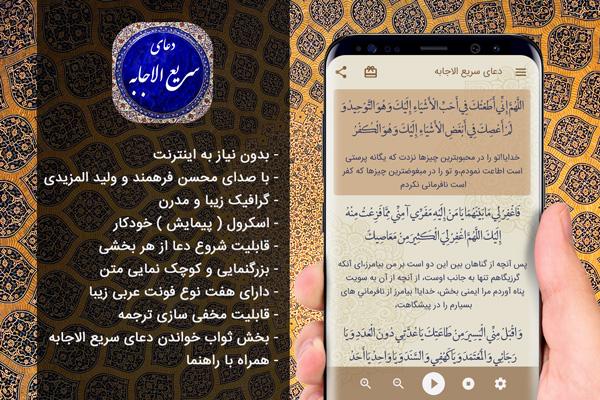 دعای
سریع الاجابه
- بدون نیاز به اینترنت
- با صدای محسن فرهمند و ولید المزیدی
- گرافیک زیبا و مدرن
- اسکرول ( پیمایش ) خودکار
- قابلیت شروع دعا از هر بخشی
- بزرگنمایی و کوچک نمایی متن
- دارای هفت نوع فونت عربی زیبا
- قابلیت مخفی سازی ترجمه
- بخش ثواب خواندن دعای سریع الاجابه
- همراه با راهنما
دعای سریع الاجابه
اللَّهُمَّ إِنِّي أَطَعْتُكَ فِي أَحَبِّ الْأَشْيَاءِ إِلَيْكَ وَ هُوَ التَّوْحِيدُ وَ
لَمْ أَعْصِكَ فِي أَبْغَضِ الْأَشْيَاءِ إِلَيْكَ وَ هُوَ الْكُفْرُ
خدایااتو را در محبوبترین چیزها نزدت که یگانه پرستی
است اطاعت نمودم،و تو را در مبغوضترین چیزها که کفر
است نافرمانی نکردم
فَاغْفِرْ لِي مَا بَيْنَهُمَا يَا مَنْ إِلَيْهِ مَفَرِّي آمِنِّي مِمَّا فَزِعْتُ مِنْهُ
إِلَيْكَ اللَّهُمَّ اغْفِرْ لِيَ الْكَثِيرَ مِنْ مَعَاصِيكَ
پس آنچه از گناهان بین این دو است بر من بیامرزبای آنکه
گرزیگاهم تنها به جانب اوست، از آنچه از آن به سویت
پناه آوردم مرا ایمنی بخش، خدایا! بیامرز از نافرمانی های
بسیارم را در پیشگاهت،
وَ اقْبَلْ مِنِّي الْيَسِيرَ مِنْ طَاعَتِكَ يَا عُدَّتِي دُونَ الْعُدَدِ وَ يَا
رَجَائِي وَ الْمُعْتَمَدَ وَ يَا كَهْفِي وَ السَّنَدَ وَ يَا وَاحِدُ يَا أَحَدُ